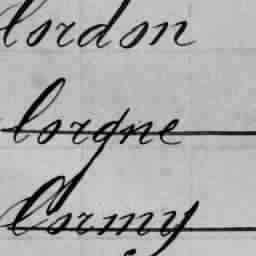 Cordon
Corgne
Cormy